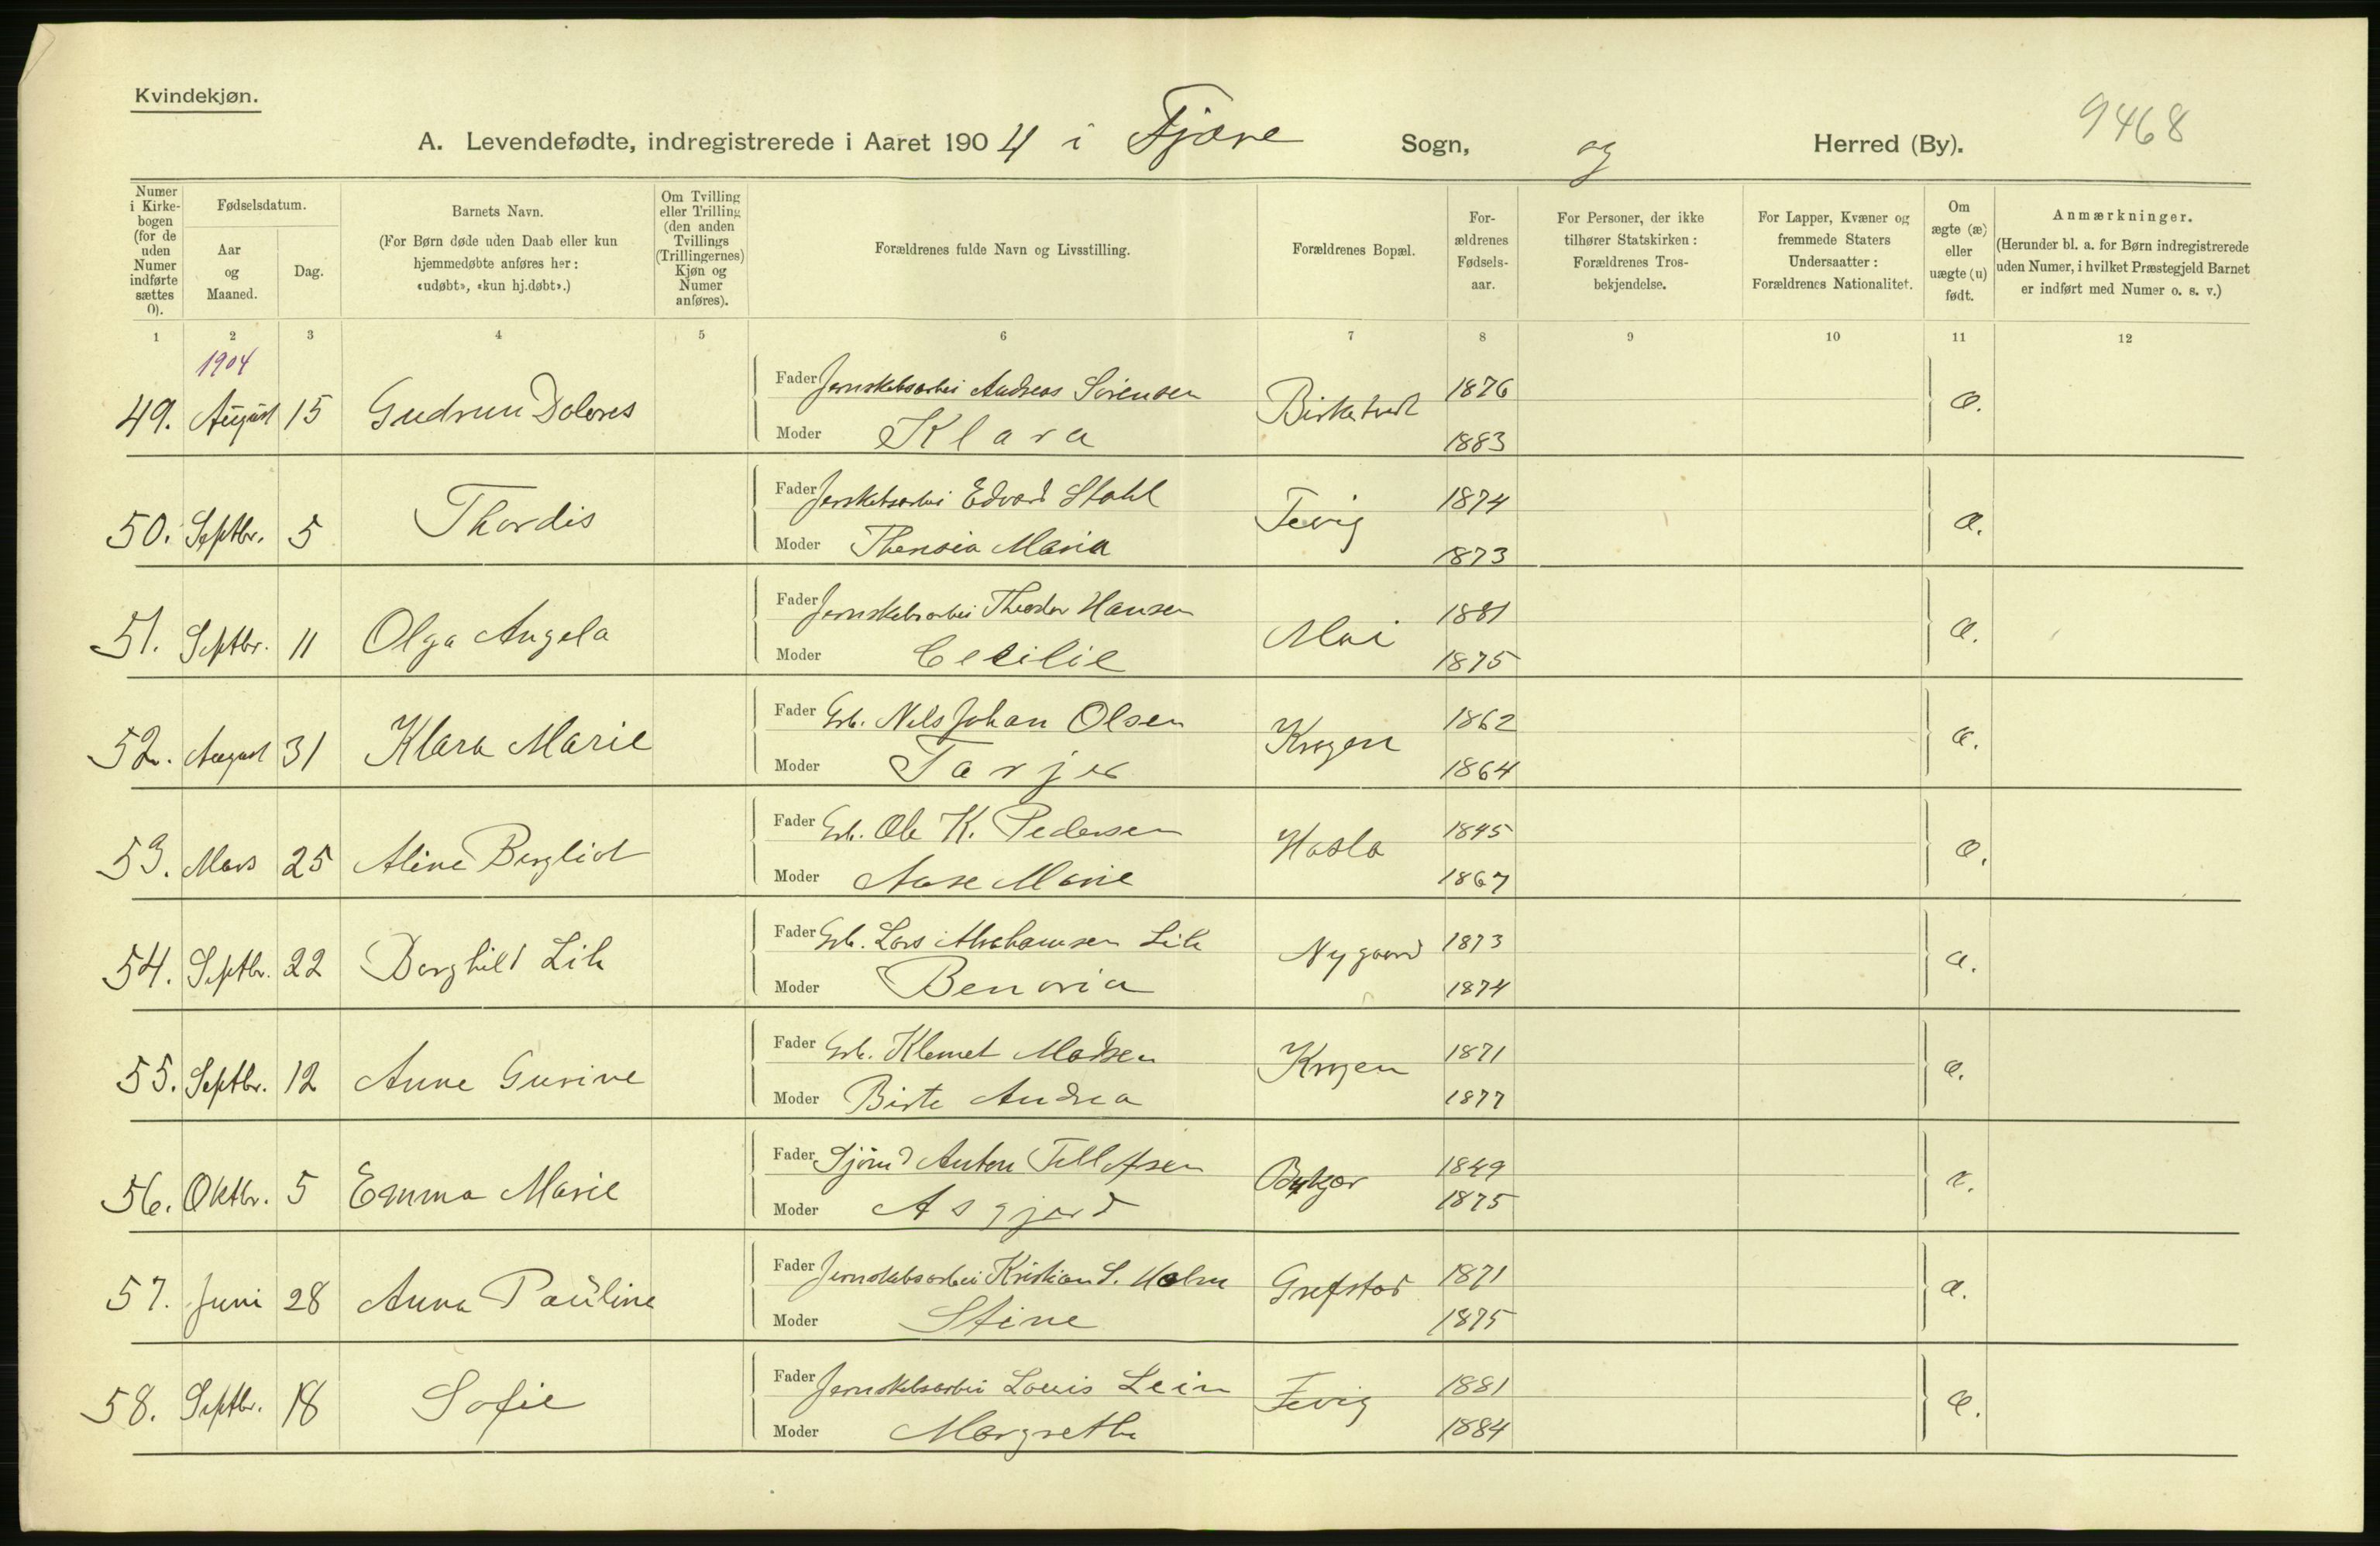 Kvindekjøn.
9468
A. Levendefødte, indregistrerede i Aaret 1904 i Fjære Sogn, og Herred (By).
Numer i Kirkebogen (for de uden Numer indførte sættes 0).
Fødselsdatum.
Aar og Maaned.
Dag.
Barnets Navn.
(For Børn døde uden Daab eller kun hjemmedøbte anføres her: «udøbt», «kun hj.døbt».)
Om Tvilling eller Trilling (den anden Tvillings (Trillingernes) Kjøn og Numer anføres).
Forældrenes fulde Navn og Livsstilling.
Forældrenes Bopæl.
Forældrenes Fødselsaar.
For Personer, der ikke tilhører Statskirken: Forældrenes Trosbekjendelse.
For Lapper, Kvæner og fremmede Staters Undersaatter: Forældrenes Nationalitet.
Om ægte (æ) eller uægte (u) født.
Anmærkninger.
(Herunder bl. a. for Børn indregistrerede uden Numer, i hvilket Præstegjeld Barnet er indført med Numer o. s. v.)
1 2 3 4 5 6 7 8 9 10 11 12
1904
Fader Jernskibsarbei Andreas Sørensen 1876
49. August 15 Gudrun Dolores Birketvedt æ.
Moder Klara 1883
Fader Jernskibsarbei Edvard Stahl 1874
50. Septbr. 5 Thordis Fevig æ.
Moder Maria 1873
Fader Jernskibsarbei Theodor Hansen 1881
51. Septbr. 11 Olga Angela Moi æ.
Moder Cecilie 1875
Fader Grb. Nils Johan Olsen 1862
52. August 31 Klara Marie Krogen æ.
Moder Tarjer 1864
Fader Grb. Ole K. Pedersen 1845
53. Mars 25 Aline Bergliot Hasla æ.
Moder Aase Marie 1867
Fader Grb. Lars Abrahamsen Lih 1873
54. Septbr. 22 Borghild Lih Nygaard æ.
Moder Benoria 1874
Fader Grb. Klemet Madsen 1871
55. Septbr. 12 Anne Gurine Krogen æ.
Moder Birte Andrea 1877
Fader Sjømd Anton Tellefsen 1849
56. Oktbr. 5 Emma Marie æ.
Moder Asgjerd 1875
Fader Jernskibsarbei Kristian S. Holm 1871
57. Juni 28 Anna Pauline Grefstad æ.
Moder Stine 1875
Fader Jernskibsarbei Louis Lein 1881
58. Septbr. 18 Sofie Fevig æ.
Moder Margrethe 1884